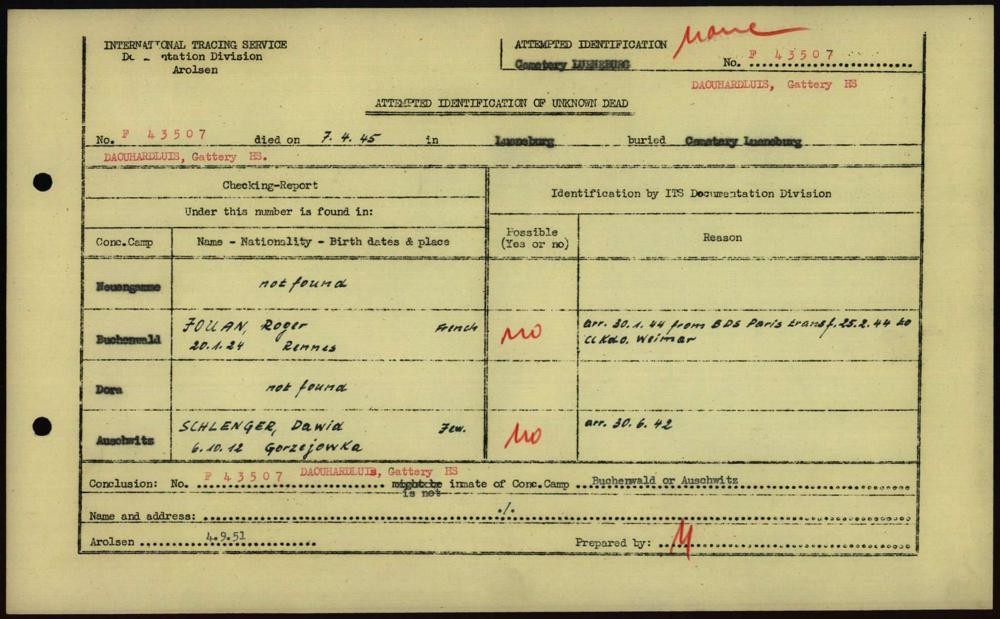 INTERNATIONAL TRACING SERVICE
Documentation Division
Arolsen
ATTEMPTED IDENTIFICATION
none
Cemetery LUENEBURG
No. F 43507
DAOUHARDLUIS, Gattery HS
ATTEMPTED IDENTIFICATION OF UNKNOWN DEAD
No. F 43507 died on 7.4.45 in Lueneburg buried Cemetary Lueneburg
DAOUHARDLUIS, Gattery HS.
Checking-Report
Identification by ITS Documentation Division
Under this number is found in:
Conc.Camp Name - Nationality - Birth dates & place Possible (Yes or no) Reason
Neuengamme not found
Buchenwald JOUAN, Roger French no arr. 30.1.44 from BDS Paris transf. 25.2.44 to
20.1.24 Rennes Weimar
Dora not found
Auschwitz SCHLENGER, Dawid Jew. no arr. 30.6.42
6.10.12 Gorzejowka
DAOUHARDLUIS, Gattery HS
Conclusion: No. F 43507 might be inmate of Conc.Camp Buchenwald or Auschwitz
is not
Name and address: ./.
Arolsen 4.9.51 Prepared by: M